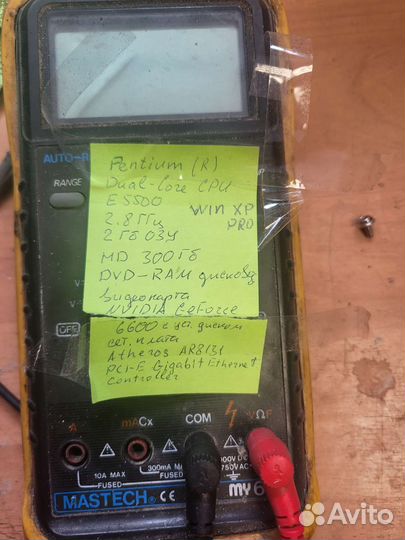 AUTO-R
RANGE
Pentium (R)
Dual-Core CPU
E5500
2.8 ГГц
WIN XP
PRO
2 Гб ОЗУ
MD 300 Гб
DVD-RAM дисковод
Видеокарта
NVIDIA GeForce
6600 с уст. диском
сет. плата
Atheros AR8131
PCI-E Gigabit Ethernet
Controller
OFF
A
mACx
COM
VΩF
10A MAX
FUSED
300mA MA
FUSED
000V D
750VAC
MASTECH CE
MY6
Avito